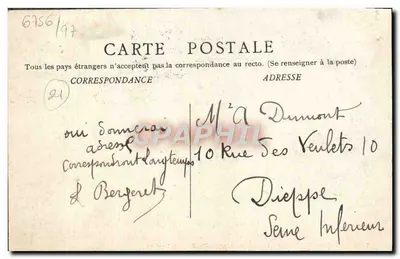 6756/97
CARTE POSTALE
Tous les pays étrangers n'acceptent pas la correspondance au recto. (Se renseigner à la poste)
CORRESPONDANCE
ADRESSE
21
oui donnerai
adresse
correspondront longtemps
E Bergeret
Mr A Dumont
10 Rue des Veulets 10
Dieppe
Seine Inferieur
CPAPHIL